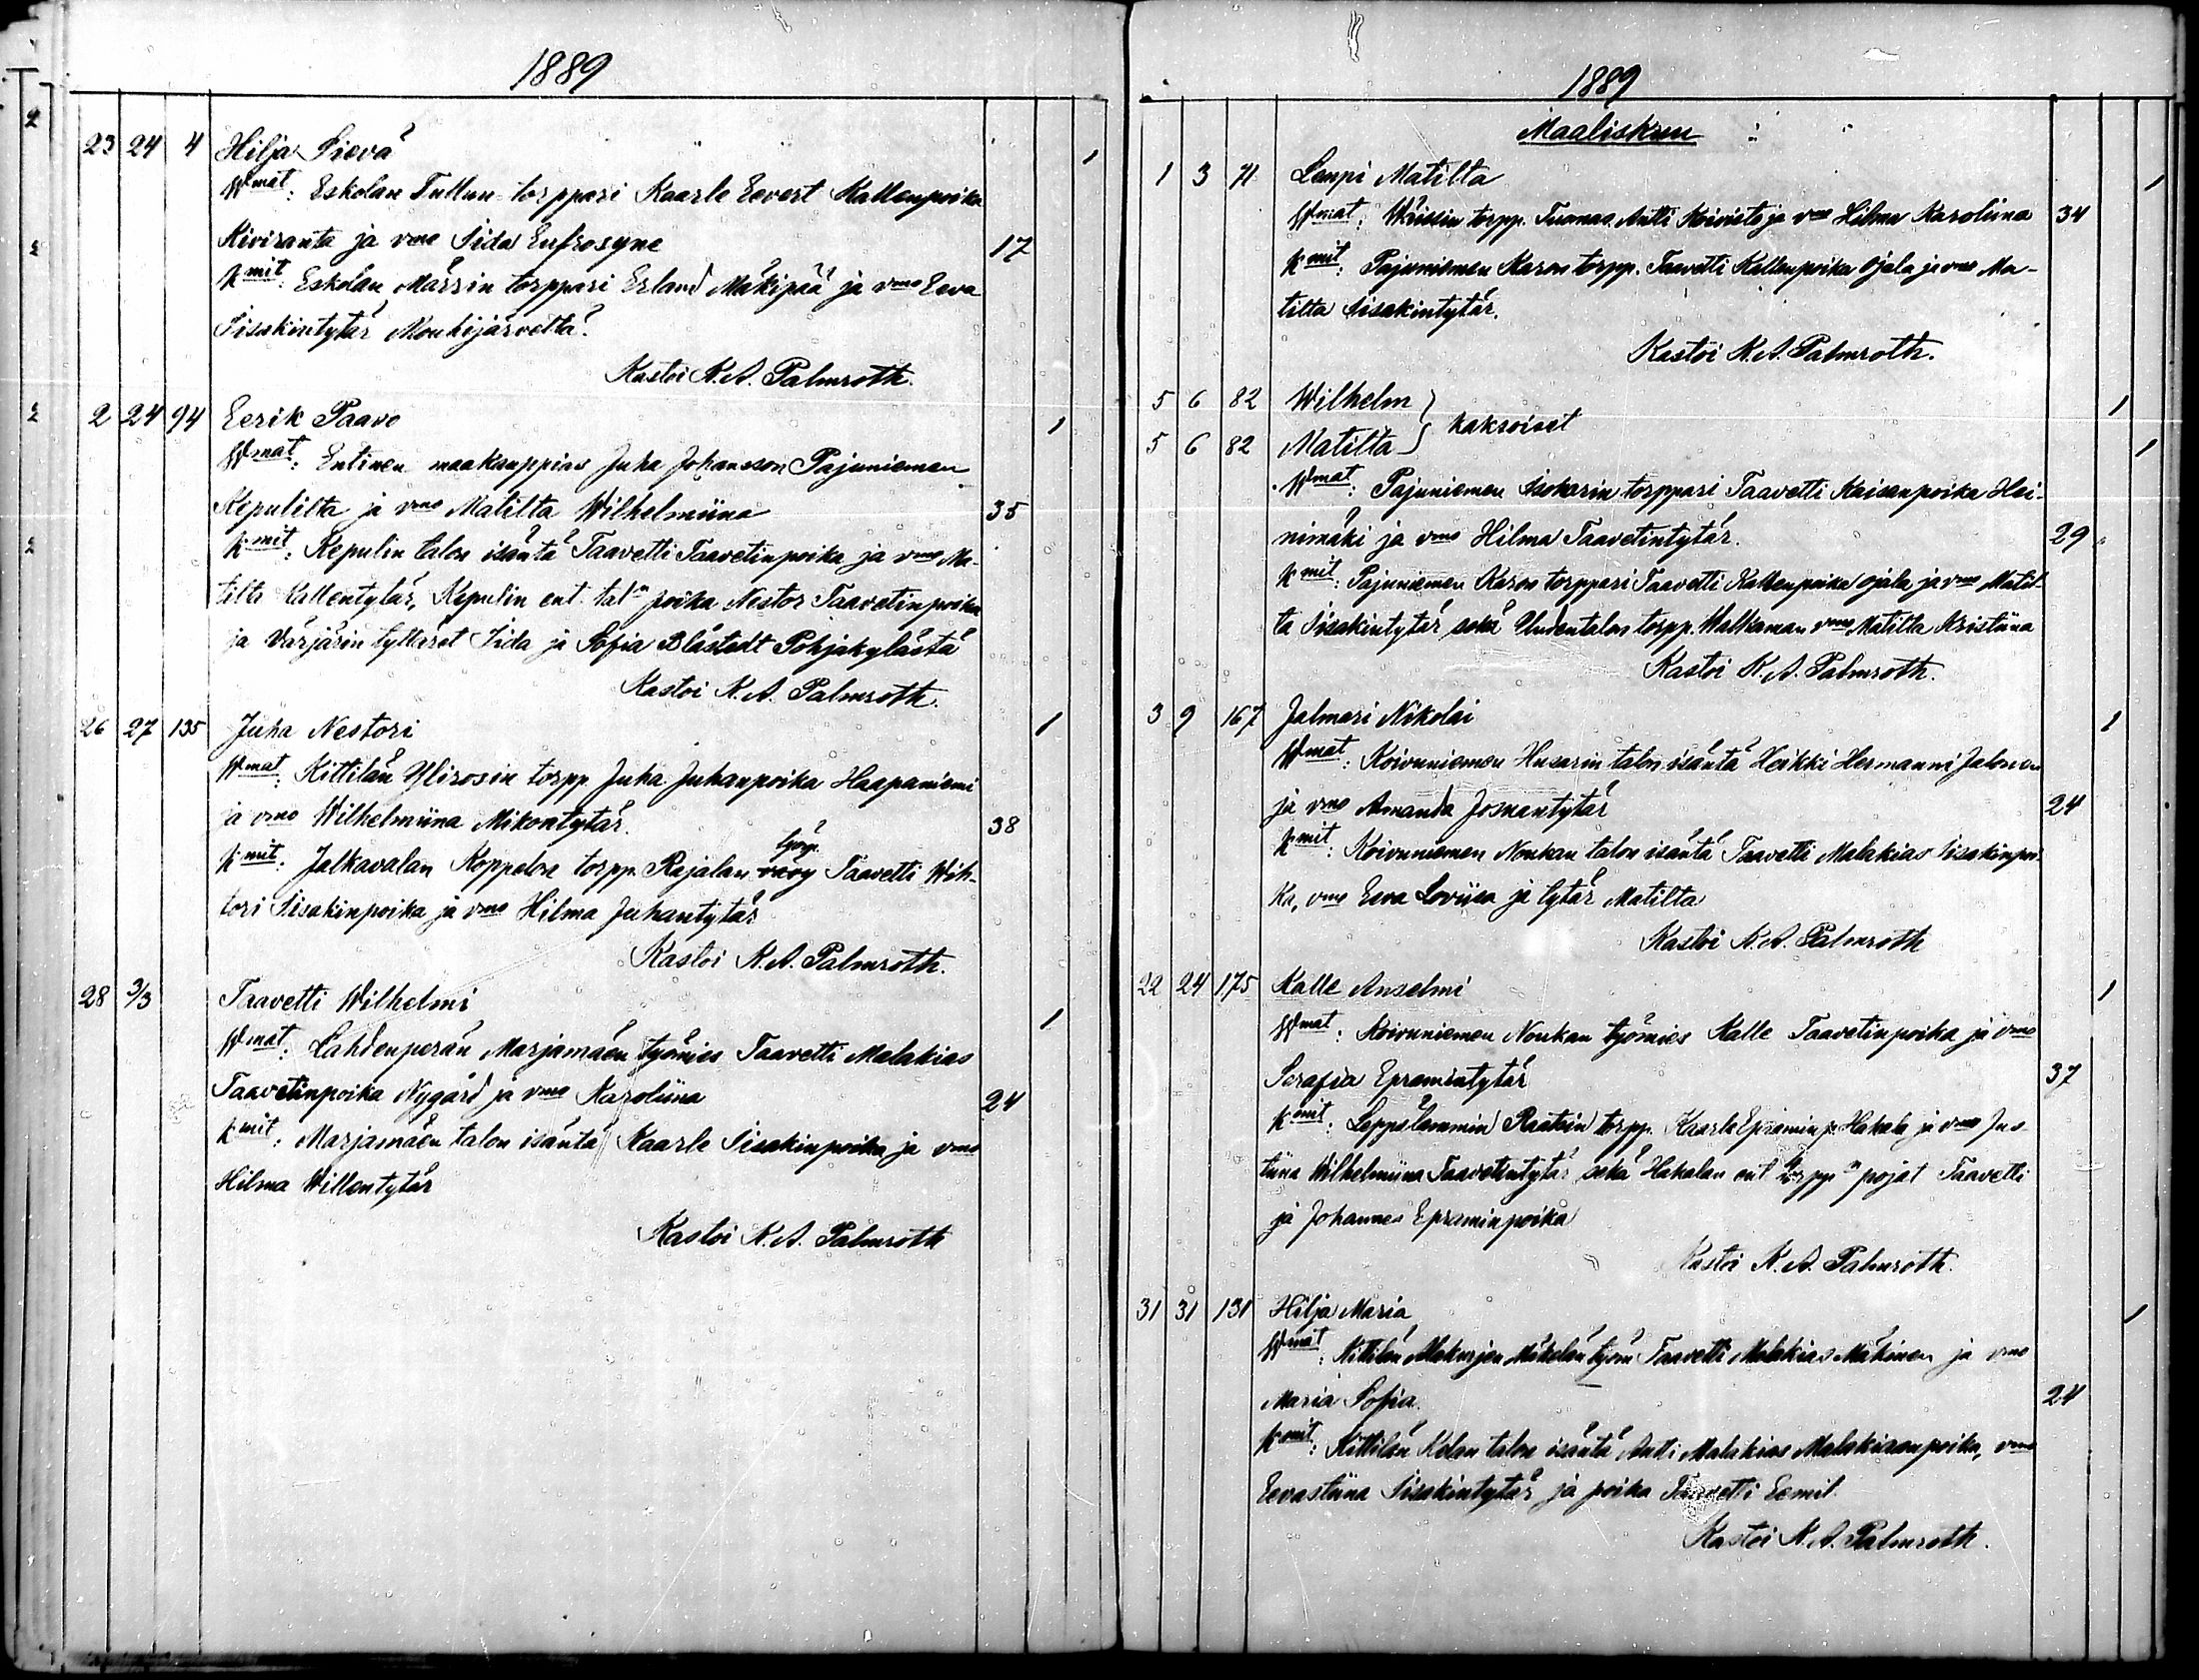 1889
23 24 4 Hilja Sievä 1
Wmat: Eskolan Tullun torppari Kaarle Eevert Kallenpoika
Kiviranta ja vmo Iida Eufrosyne 17
Kmit: Eskolan Mässin torppari Erland Mäkipää ja vmo Eeva
Iisakintytär Mouhijärveltä.
Kastoi K. A. Palmroth.
2 24 94 Eerik Paavo 1
Wmat: Entinen maakauppias Juha Johansson Pajuniemen
Repulilta ja vmo Matilta Wilhelmiina 35
Kmit: Repulin talon isäntä Taavetti Taavetinpoika ja vmo Ma-
tilta Kallentytär, Repulin ent. tal:n poika Nestor Taavetinpoika
ja Värjärin tyttäret Iida ja Sofia Blåstedt Pohjakylästä
Kastoi K. A. Palmroth.
26 27 135 Juha Nestori 1
Wmat: Kittilän Ylirosin torpp. Juha Juhanpoika Haapaniemi
ja vmo Wilhelmiina Mikontytär. 38
Kmit: Jalkavalan Koppelon torpp. Rajalan Taavetti Wih-
tori Iisakinpoika ja vmo Hilma Juhantytär
Kastoi K. A. Palmroth.
28 3/3 Taavetti Wilhelmi 1
Wmat: Lahdenperän Marjamäen työmies Taavetti Malakias
Taavetinpoika Nygård ja vmo Karoliina 24
Kmit: Marjamäen talon isäntä Kaarle Iisakinpoika ja vmo
Hilma Willentytär
Kastoi K. A. Palmroth
1889
Maaliskuu
1 3 71 Lempi Matilta 1
Wmat: torpp. Tuomas Antti Koivisto ja vmo Hilma Karoliina 34
Kmit: Pajuniemen Karon torpp. Taavetti Kallenpoika Ojala ja vmo Ma-
tilta Iisakintytär.
Kastoi K. A. Palmroth.
5 6 82 Wilhelm } kaksoiset 1
5 6 82 Matilta 1
Wmat: Pajuniemen Isokarin torppari Taavetti Kaisanpoika Hei-
nimäki ja vmo Hilma Taavetintytär. 29
Kmit: Pajuniemen Karon torppari Taavetti Kallenpoika Ojala ja vmo Matil-
ta Iisakintytär sekä Uudentalon torpp. Walkaman vmo Matilta Kristiina
Kastoi K. A. Palmroth.
3 9 167 Jalmari Nikolai 1
Wmat: Koivuniemen Husarin talon isäntä Heikki Hermanni Jalonen
ja vmo Amanda Joosuantytär 24
Kmit: Koivuniemen Noukan talon isäntä Taavetti Malakias Iisakinpoi-
ka, vmo Eeva Loviisa ja tytär Matilta
Kastoi K. A. Palmroth
22 24 175 Kalle Anselmi 1
Wmat: Koivuniemen Noukan työmies Kalle Taavetinpoika ja vmo
Serafia Epramintytär 37
Kmit: Leppälammin Raatin torpp. Kaarle Epramin p. Hakala ja vmo Jus-
tiina Wilhelmiina Taavetintytär sekä Hakalan ent torpp:n pojat Taavetti
ja Johannes Epraminpoika
Kastoi K. A. Palmroth.
31 31 131 Hilja Maria 1
Wmat: Kittilän Mäkelän työm Taavetti Malakias Mäkinen ja vmo
Maria Sofia. 24
Kmit: Kittilän Kolan talon isäntä Antti Malakias Malakiaanpoika, vmo
Eevastiina Iisakintytär ja poika Taavetti Eemil.
Kastoi K. A. Palmroth.